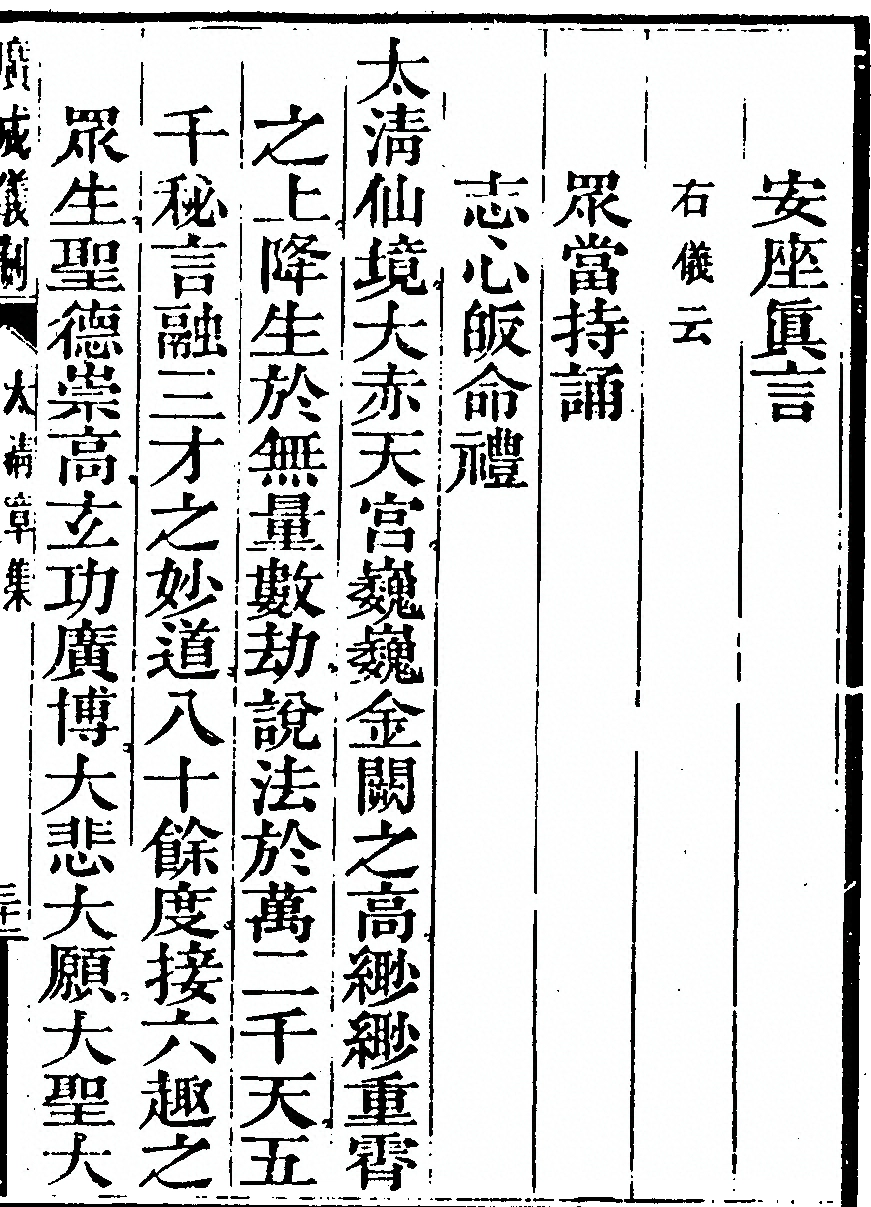 安座眞言
右儀云
眾當持誦
志心皈命禮
太清仙境大赤天宫巍巍金闕之高緲緲重霄
之上降生於無量數劫說法於萬二千天五
千秘言融三才之妙道八十餘度接六趣之
眾生聖德崇高玄功廣博大悲大願大聖大
廣成儀制 太清章集 三十二